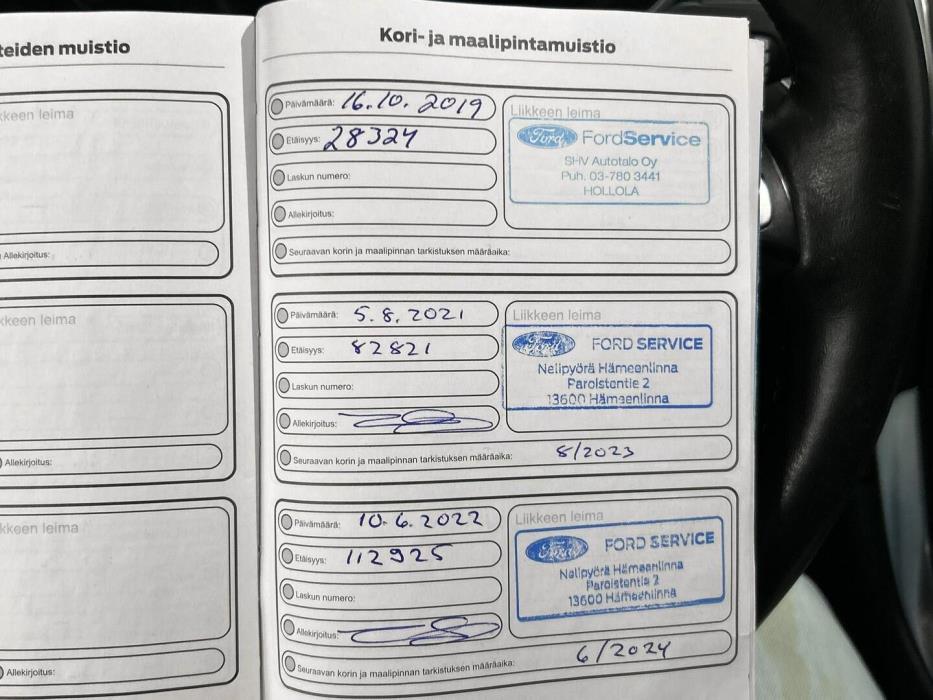 teiden muistio
kkeen leima
Allekirjoitus:
kkeen leima
Allekirjoitus:
kkeen leima
Allekirjoitus:
Kori- ja maalipintamuistio
Päivämäärä: 16.10. 2019
Etäisyys: 28324
Laskun numero:
Allekirjoitus:
Liikkeen leima
Ford FordService
SHV Autotalo Oy
Puh. 03-780 3441
HOLLOLA
Seuraavan korin ja maalipinnan tarkistuksen määräaika:
Päivämäärä: 5.8.2021
Etäisyys: 82821
Laskun numero:
Allekirjoitus:
Liikkeen leima
Ford FORD SERVICE
Nelipyörä Hämeenlinna
Paroistentie 2
13600 Hämeenlinna
Seuraavan korin ja maalipinnan tarkistuksen määräaika: 8/2023
Päivämäärä: 10.6.2022
Etäisyys: 112925
Laskun numero:
Allekirjoitus:
Liikkeen leima
Ford FORD SERVICE
Nelipyörä Hämeenlinna
Paroistentie 2
13600 Hämeenlinna
Seuraavan korin ja maalipinnan tarkistuksen määräaika: 6/2024